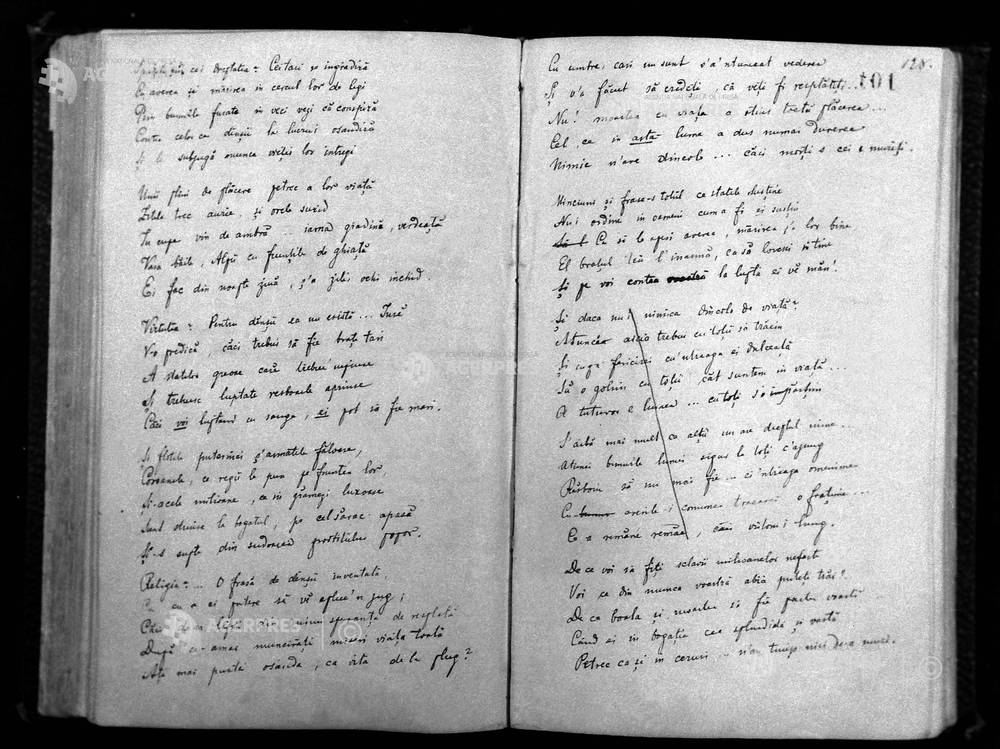 Spuneți-mi ce-i dreptatea? Cei tari se îngrădiră
Cu averea și mărirea în cercul lor de legi
Prin bunurile furate în veci vezi că conspiră
Contra celor ce dînșii la lucru-i osandiră
Și le subjugă munca vieții lor întregi
Unii plini de plăcere petrec a lor viață
Zilele trec aurie, și orele surîd
In cupe vin de ambră - iarna gradină, verdeață
Vara băile, Alpii cu frunțile de ghiață
Ei fac din noapte ziuă, ș'a zilei ochi închid.
Virtutea? Pentru dînșii ea nu există... Insă
V-o predică, căci trebui să fie brațe tari
A statelor greoae cară trebui-nainse
Și trebuesc luptate resboaele aprinse
Căci voi luptând cu sange, ei pot să fie mari.
Și flotele puternici ș'armatele făloase,
Coroanele, ce regii le pun pe fruntea lor,
Și-acele milioane, ce în grămezi luxoase
Sunt strînse la bogatul, pe cel sărac apasă
Și-s supte din sudoarea prostitului popor.
Religia?... O frasă de dînșii inventată
Ca cu a ei putere să vă aplece'n jug;
Căci speranța de resplată
După ce-amar munciräți miseri viața toată
Ați mai purta osanda, ca vita de la plug?
AGERPRES
128.
101
Cu umbre, cari nu sunt v'a'ntunecat vederea
Și v'a făcut să credeți, că veți fi resplătiți...
Nu! moartea cu viața a stins toată plăcerea...
Cel ce în asta lume a dus numai durerea
Nimic n'are dincolo... căci morți-s cei muriți.
Minciuni și frase-i totul ce statele susține
Nu-i ordinea în oameni cum a fi ei susțin
Ca să le aperi averea, mărirea ș'a lor bine
El brațul tău l'înarmă, ca să lovești în tine
Și pe voi contra voastră la luptă ei vě mân'.
Și daca nu-i nimica dincolo de viață?
Atuncea aicia trebui cu toții să trăim
Și cupa fericirei cu'ntreaga ei dulceață
Să o golim cu toții cât suntem în viață...
A tuturor e lumea... cu toți s'o împărțim
S'aibă mai mult ca alții nu are dreptul nime...
Atunci bunurile lumei sigur la toți c'ajung
Răsboiu să nu mai fie... ci'ntreaga omenime
Cu averile-i comune traească o frăținie...
Ce a rămâne remâe, căci viitoru-i lung.
De ce voi să fiți sclavii milioanelor nefaste
Voi ce din munca voastră abia puteți trăi?
De ce boala și moartea să fie partea voastră
Când ei în bogăția cea splendidă și vastă
Petrec ca și în ceruri - n'au timp nici de-a muri.